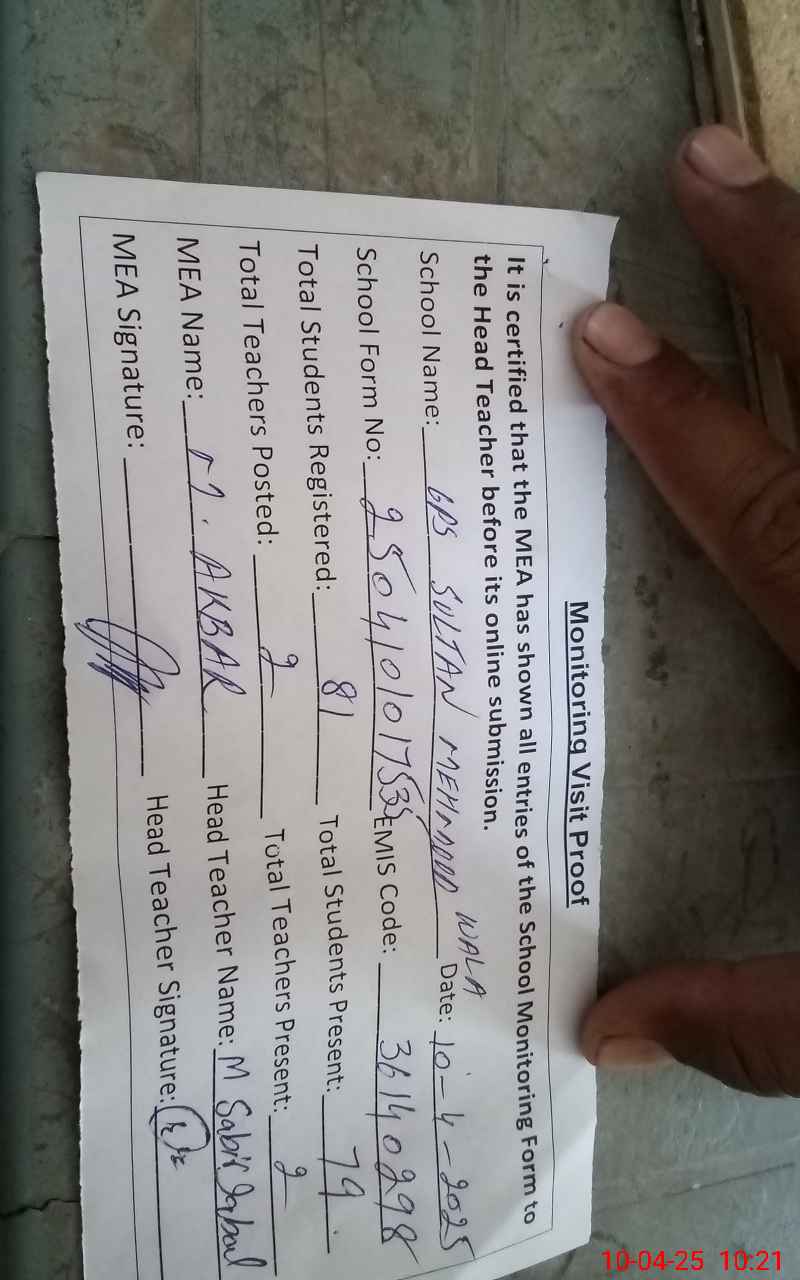 Monitoring Visit Proof
It is certified that the MEA has shown all entries of the School Monitoring Form to
the Head Teacher before its online submission.
School Name: GPS SULTAN MEHMOOD WALA Date: 10-4-2025
School Form No: 2504101017535 EMIS Code: 36140298
Total Students Registered: 81 Total Students Present: 79.
Total Teachers Posted: 2 Total Teachers Present: 2
MEA Name: M. AKBAR Head Teacher Name: M Sabir Iqbal
MEA Signature: Head Teacher Signature:
10-04-25 10:21